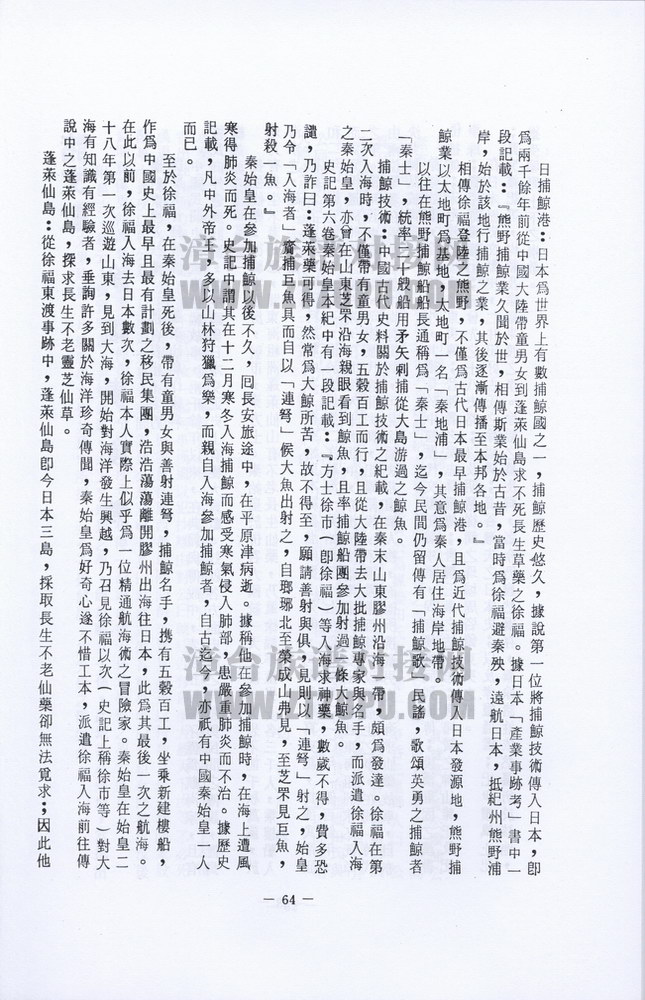 日捕鯨港：日本爲世界上有數捕鯨國之一，捕鯨歷史悠久，據說第一位將捕鯨技術傳入日本，卽
爲兩千餘年前從中國大陸帶童男女到蓬萊仙島求不死長生草藥之徐福。據日本「產業事跡考」書中一
段記載：『熊野捕鯨業久聞於世，相傳斯業始於古昔，當時爲徐福避秦殃，遠航日本，抵紀州熊野浦
岸，始於該地行捕鯨之業，其後逐漸傳播至本邦各地。』
相傳徐福登陸之熊野，不僅爲古代日本最早捕鯨港，且爲近代捕鯨技術傳入日本發源地，熊野捕
鯨業以太地町爲基地，太地町一名「秦地浦」，其意爲秦人居住海岸地帶。
以往在熊野捕鯨船船長通稱爲「秦士」，迄今民間仍留傳有「捕鯨歌」民謠，歌頌英勇之捕鯨者
「秦士」，統率二十艘船用矛矢刺捕從大島游過之鯨魚。
捕鯨技術：中國古代史料關於捕鯨技術之紀載，在秦末山東膠州沿海一帶，頗爲發達。徐福在第
二次入海時，不僅帶有童男女，五穀百工而行，且從大陸帶去大批捕鯨專家與名手，而派遣徐福入海
之秦始皇，亦曾在山東芝罘沿海親眼看到鯨魚，且率捕鯨船團參加射過一條大鯨魚。
史記第六卷秦始皇本紀中有一段記載：『方士徐市（卽徐福）等入海求神藥，數歲不得，費多恐
譴，乃詐曰：蓬萊藥可得，然常爲大鯨所苦，故不得至，願請善射與俱，見則以「連弩」射之，始皇
乃令「入海者」齎捕巨魚具而自以「連弩」候大魚出射之，自瑯瑘北至榮成山弗見，至芝罘見巨魚，
射殺一魚。』
秦始皇在參加捕鯨以後不久，囘長安旅途中，在平原津病逝。據稱他在參加捕鯨時，在海上遭風
寒得肺炎而死。史記中謂其在十二月寒冬入海捕鯨而感受寒氣侵入肺部，患嚴重肺炎而不治。據歷史
記載，凡中外帝王，多以山林狩獵爲樂，而親自入海參加捕鯨者，自古迄今，亦祇有中國秦始皇一人
而已。
至於徐福，在秦始皇死後，帶有童男女與善射連弩，捕鯨名手，携有五穀百工，坐乘新建樓船，
作爲中國史上最早且最有計劃之移民集團，浩浩蕩蕩離開膠州出海往日本，此爲其最後一次之航海。
在此以前，徐福入海去日本數次，徐福本人實際上似乎爲一位精通航海術之冒險家。秦始皇在始皇二
十八年第一次巡遊山東，見到大海，開始對海洋發生興趣，乃召見徐福以次（史記上稱徐市等）對大
海有知識有經驗者，垂詢許多關於海洋珍奇傳聞，秦始皇爲好奇心遂不惜工本，派遣徐福入海前往傳
說中之蓬萊仙島，探求長生不老靈芝仙草。
蓬萊仙島：從徐福東渡事跡中，蓬萊仙島卽今日本三島，採取長生不老仙藥卻無法覓求；因此他
— 64 —